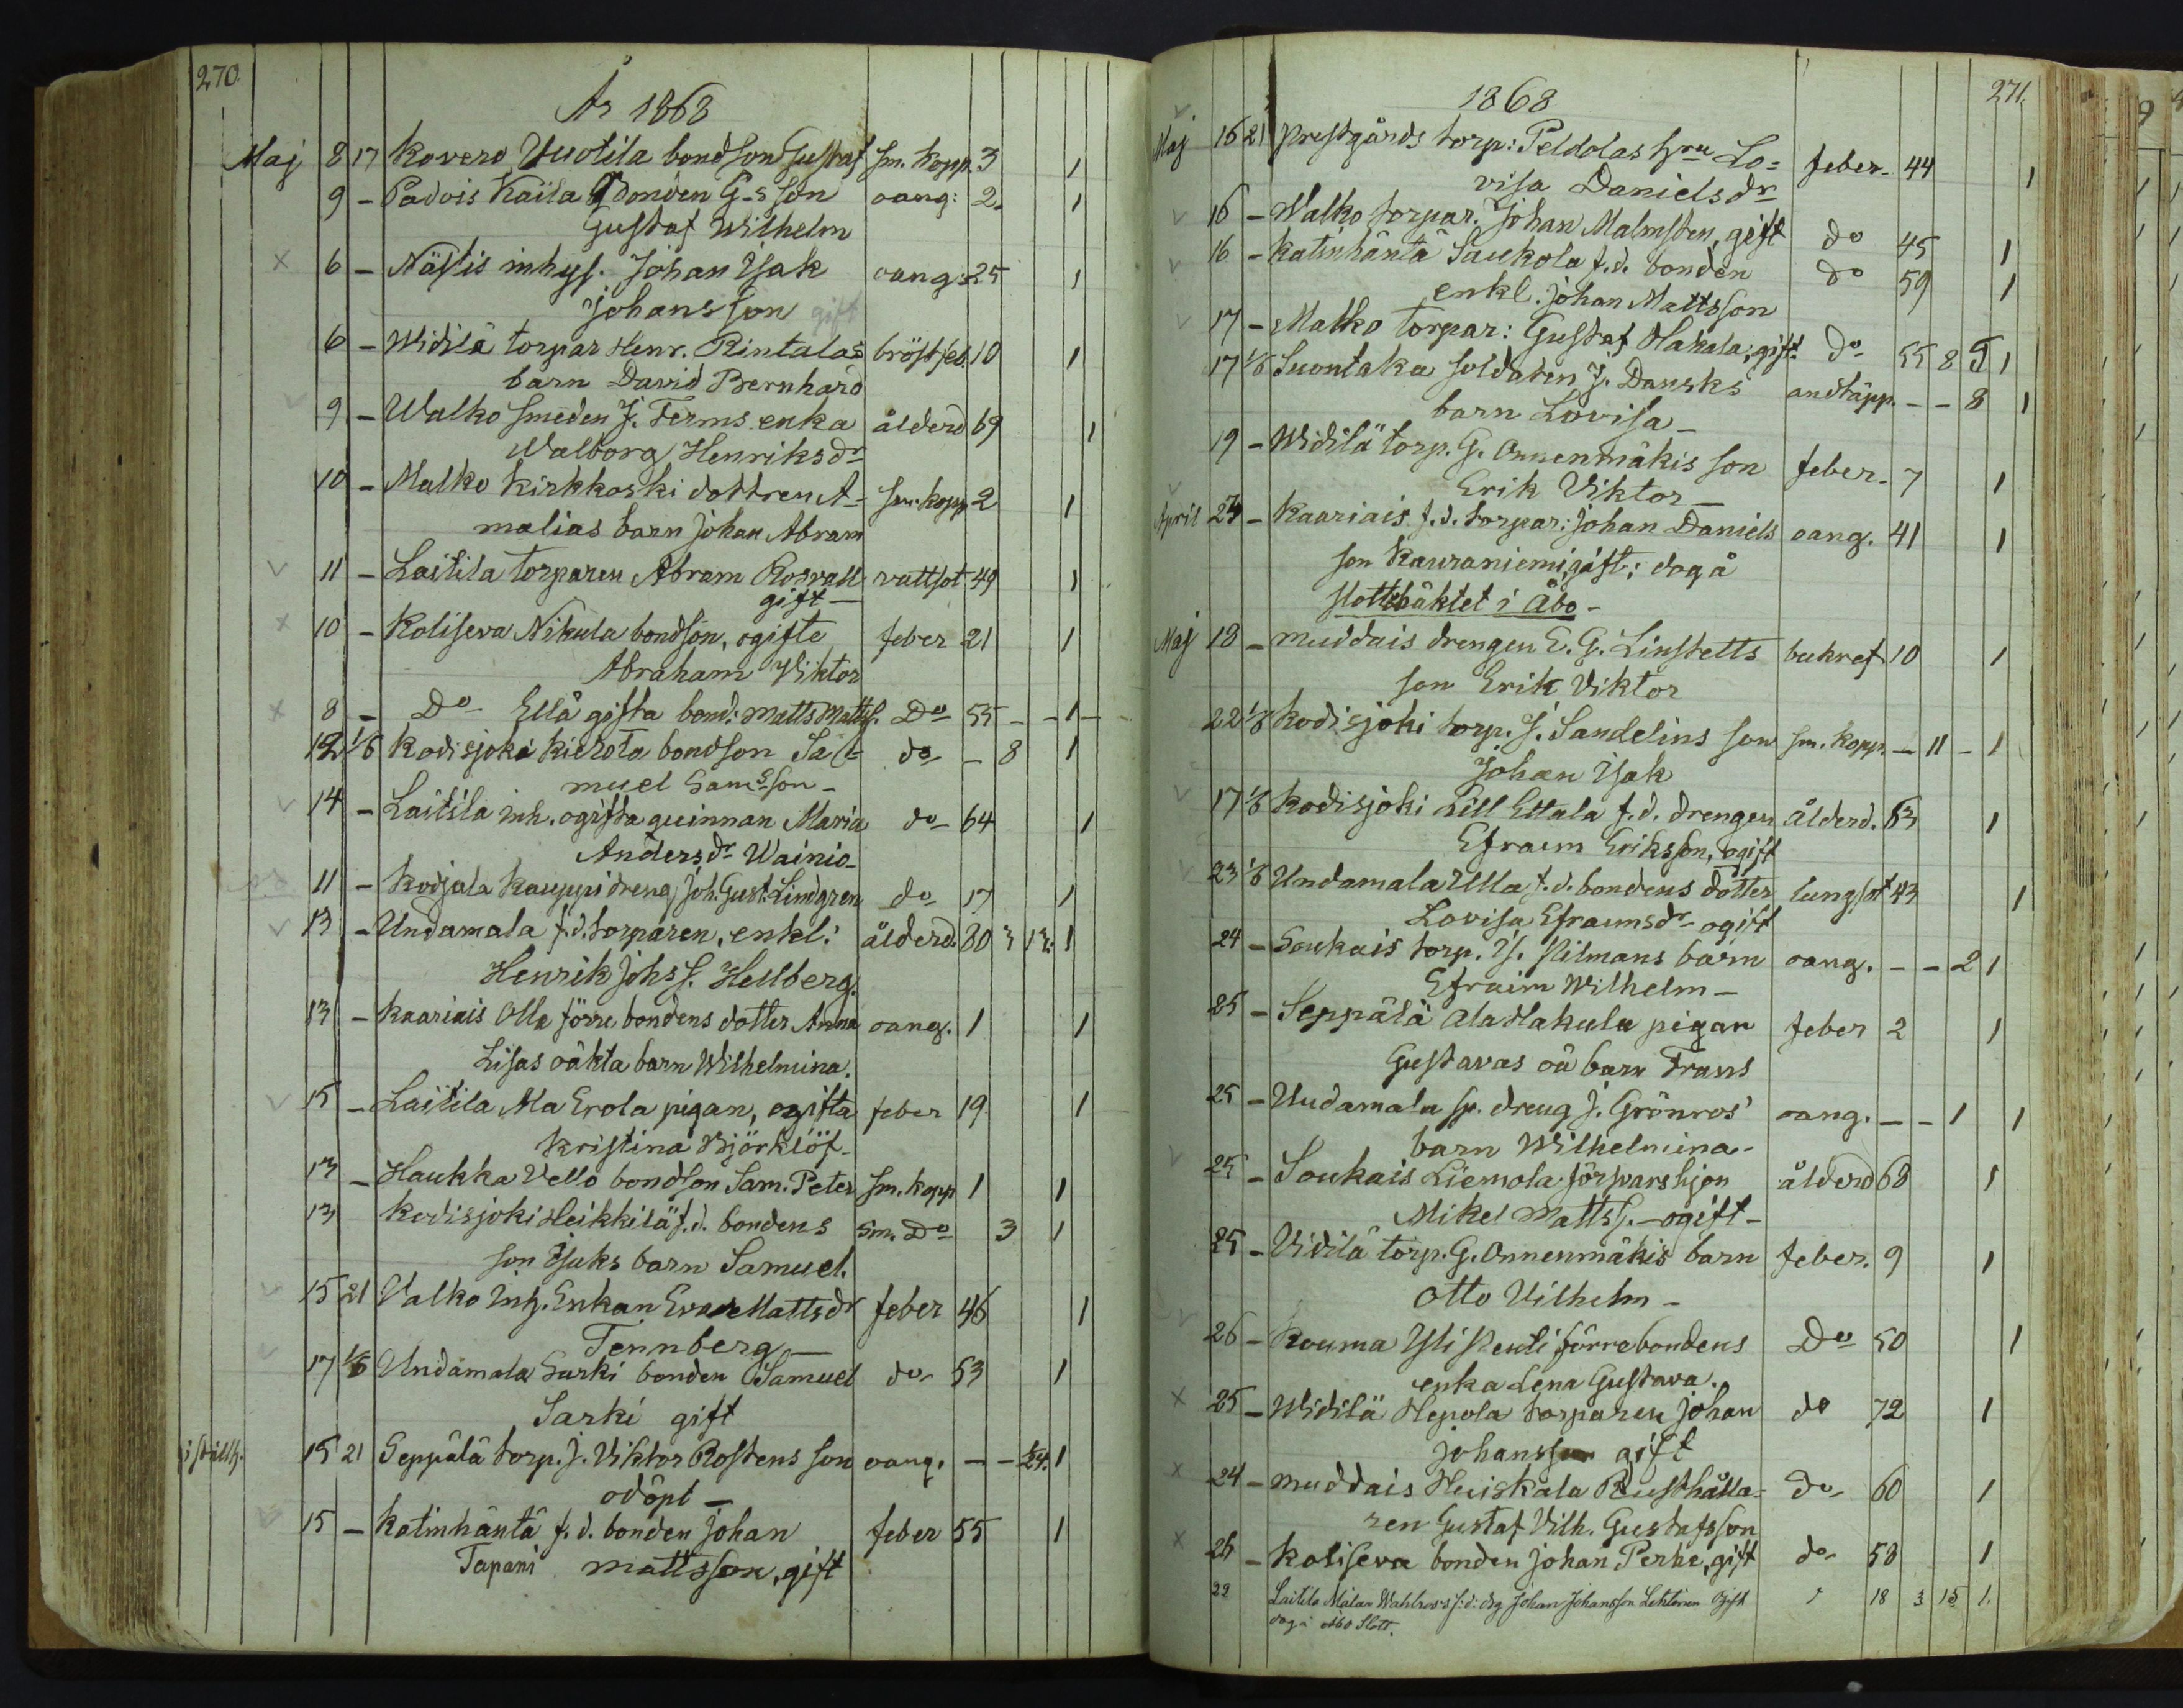 270
År 1868
Maj 8 17 Kovero Uuotila bondson Gustaf sm. kopp. 3 1
9 - Padois Kaila bonden G-s son oang: 2. 1
Gustaf Wilhelm
6 - Nästis inhys. Johan Isak oang: 25 1
Johansson gift
6 - Widilä torpar Henr. Rintalas bröstfeb. 10 1
barn David Bernhard
9 - Walko smeden J. Ferms enka ålderd 69 1
Walborg Henriksdr
10 - Malko Kirkkoski dottren A- sm. kopp 2 1
malias barn Johan Abram
11 - Laitila torparen Abram Rosvall vattsot 49 1
gift -
10 - Koliseva Nikula bondson, ogifte feber 21 1
Abraham Viktor
8 - Do Ellä gifta bond: Matts Matts. Do 55 - - 1 -
12 1/6 Kodisjoki Kierota bondson Sa- do - 8 1
muel Sams son -
14 - Laitila inh. ogifta quinnan Maria do - 64 1
Andersdr Wainio -
11 - Kodjala Kauppi dreng Joh. Gust. Lindgren do 17 1
13 - Undamala f.d. torparen, enkl: ålderd. 80 3 13. 1
Henrik Johs s. Hellberg.
13 - Kaariais Olla förre bondens dotter Anna oang. 1 1
Lisas oäkta barn Wilhelmina.
15 - Laitila Ala Erola pigan, ogifta feber 19 1
Kristina Björklöf -
13 - Haukka Vello bondson Sam. Peter sm. kopp 1 1
13 Kodisjoki Heikkilä f.d. bondens sm. Do 3 1
son Isaks barn Samuel.
15 21 Valko inh. Enkan Eva Mattsdr feber 46 1
Tennberg -
17 1/6 Undamala Sarki bonden Samuel do - 53 1
Sarki gift
15 21 Seppälä torp. J. Viktor Rostens son oang. - - 1/24. 1
odöpt -
15 - Katinhäntä f.d. bonden Johan feber 55 1
Tapani Mattsson, gift
271.
1868
Maj 16 21 Prestgårds torp: Peldolas hru Lo= feber. 44 1
visa Danielsdr
16 - Walko torpar. Johan Malmsten, gift do 45 1
16 - Katinhäntä Saukola f.d. bonden do 59 1
enkl. Johan Mattsson
17 - Malko torpar: Gustaf Hakala, gift. do 55 8 5 1
17 1/6 Suontaka soldaten J. Dansks andtäpp. - - 8 1
barn Lovisa -
19 - Widilä torp. G. Onnenmäkis son feber. 7 1
Erik Viktor -
April 24 - Kaariais f.d. torpar: Johan Daniels oang. 41 1
son Kauraniemi, gift; dog å
slottshäktet i Åbo -
Maj 18 - Muddais drengen E. G. Linstetts bukref 10 1
son Erik Viktor
22 1/6 Kodisjoki torp. J. Sandelins son sm. kopp. - 11 - 1
Johan Isak
17 1/6 Kodisjoki Lill Ettala f.d. drengen ålderd. 83 1
Efraim Eriksson, ogift
23 1/6 Undamala Ulla f.d. bondens dotter lungsot 43 1
Lovisa Efraimsdr - ogift
24 - Soukais torp. Is. Nilmans barn oang. - - 2 1
Efraim Wilhelm -
25 - Seppälä Ala Hakula pigan feber 2 1
Gustavas oä barn Frans
25 - Undamala sp. dreng J. Grönros' oang. - - 1 1
barn Wilhelmina -
25 - Soukais Liemola försvarshjon ålderd 68 1
Mikel Mattss. - ogift -
25 - Vidilä torp. G. Onnenmäkis barn feber. 9 1
Otto Vilhelm -
26 - Kouma Yli Pentti förre bondens Do 50 1
enka Lena Gustava.
25 - Widilä Hepola torparen Johan do 72 1
Johansson gift
24 - Muddais Huiskala Rusthålla= do - 60 1
ren Gustaf Vilh. Gustafsson
26 - Koliseva bonden Johan Perke, gift do - 58 1
22 Laitila Mälar Wahlroos's f:d: drg Johan Johansson Lehtinen Ogift 18 3 15 1.
dog i Åbo Slott.